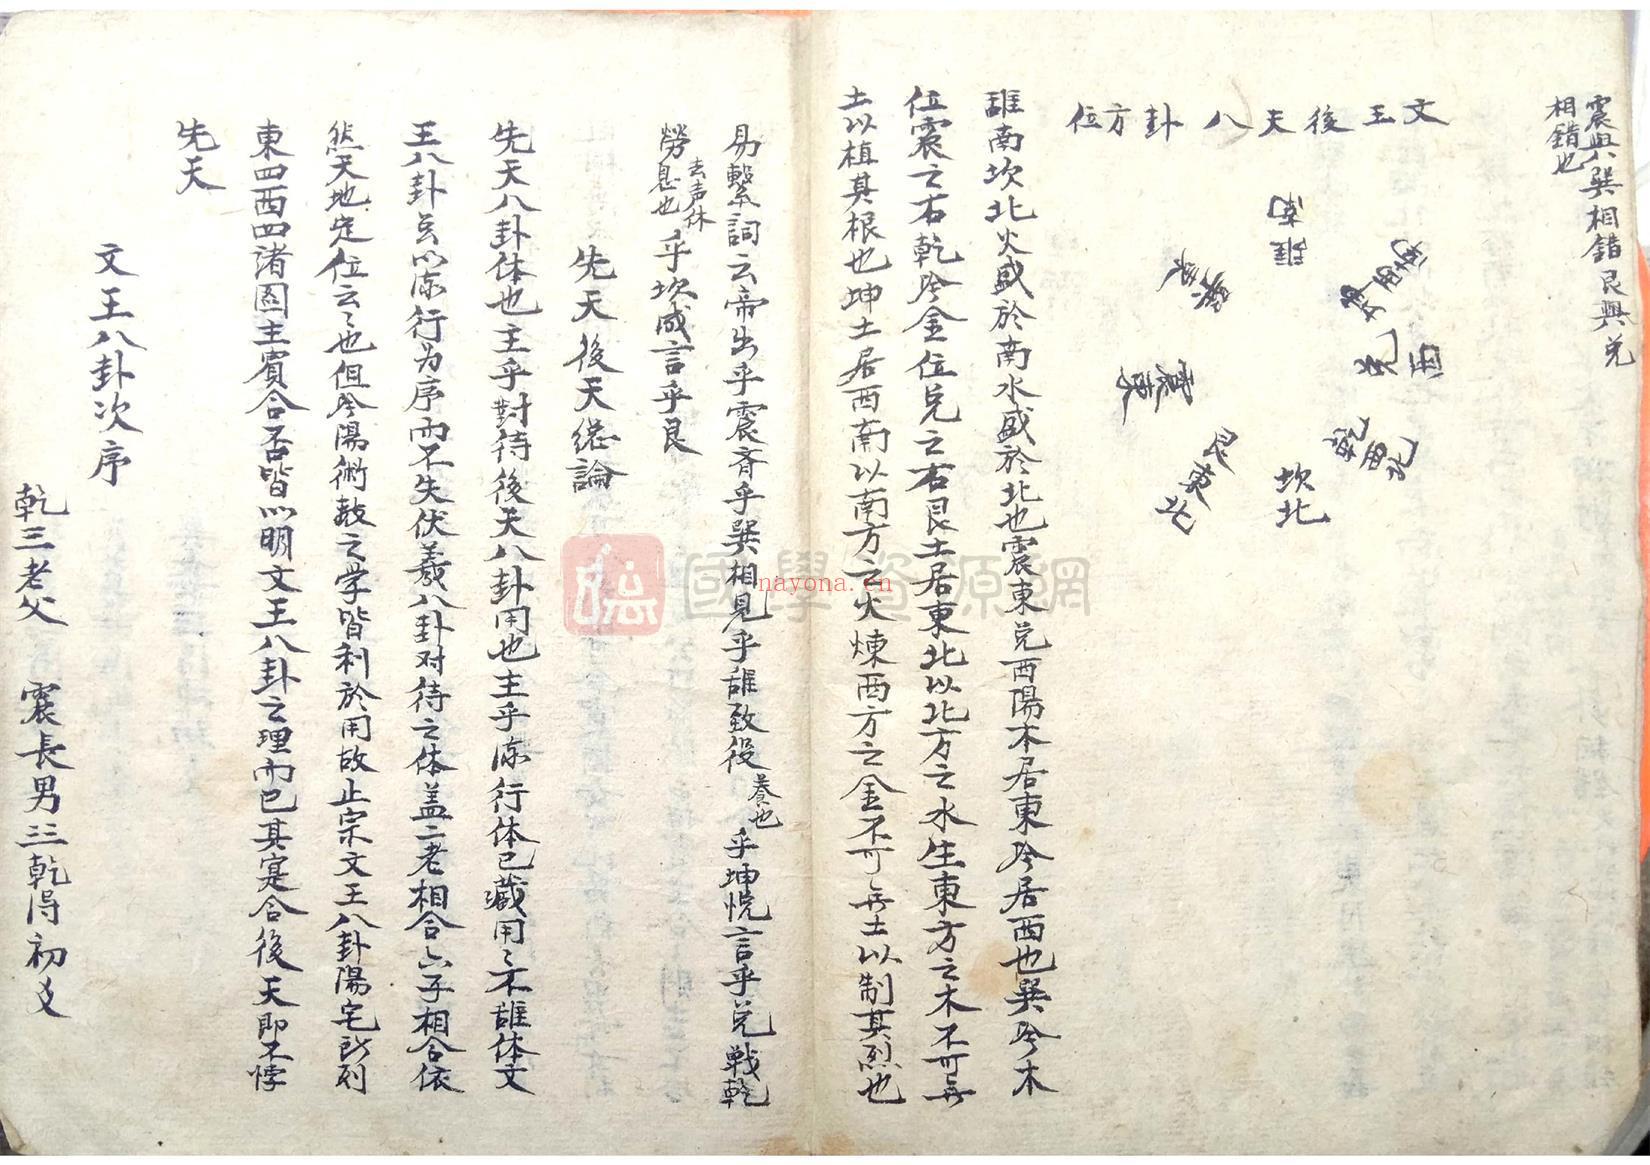 震與巽相錯艮與兑
相錯也
文王後天八卦方位
離南
坤西南
兑西
乾西北
坎北
艮東北
震東
巽東南
離南坎北火盛於南水盛於北也震東兑西陽木居東阴居西也巽阴木
位震之右乾阴金位兑之右艮土居東北以北方之水生東方之木不可無
土以植其根也坤土居西南以南方之火煉西方之金不可無土以制其烈也
易繫詞云帝出乎震斉乎巽相見乎離致役養也乎坤悦言乎兑戰乾
勞去声休息也乎坎成言乎艮
先天後天總論
先天八卦体也主乎對待後天八卦用也主乎流行体已藏用〻不離体文
王八卦玄以流行为序而不失伏羲八卦对待之体盖二老相合六子相合依
然天地定位云〻也但阴陽術数之学皆利於用故止宗文王八卦陽宅所列
東四西四諸圖主賓合否皆以明文王八卦之理而已其寔合後天即不悖
先天
文王八卦次序
乾三老父 震長男三乾得初爻
國學資源網
nayona.cn